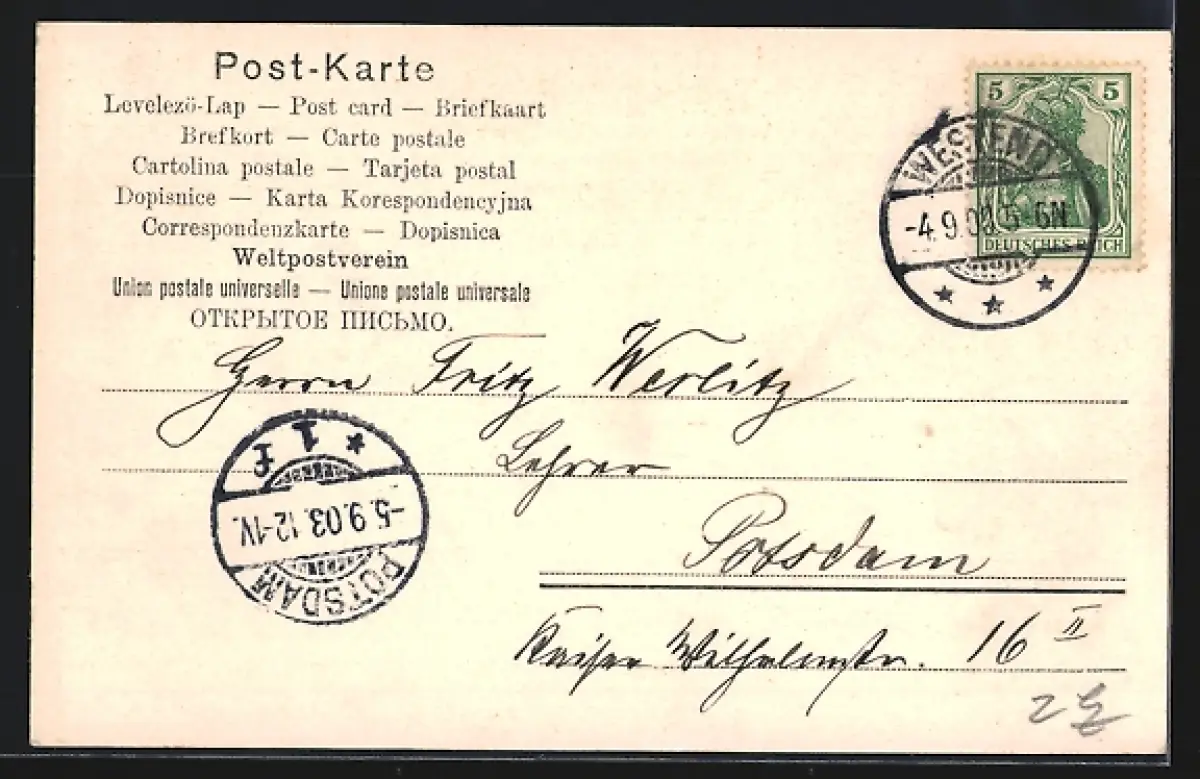 Post-Karte
Levelező-Lap — Post card — Briefkaart
Brefkort — Carte postale
Cartolina postale — Tarjeta postal
Dopisnice — Karta Korespondencyjna
Correspondenzkarte — Dopisnica
Weltpostverein
Union postale universelle — Unione postale universale
ОТКРЫТОЕ ПИСЬМО.
5 5
DEUTSCHES REICH
WESTEND
-4.9.03.5-6N
Herrn Fritz Werlitz
Lehrer
Potsdam
Kaiser Wilhelmstr. 16 II
POTSDAM
-5.9.03.12-1V.
* 1 F